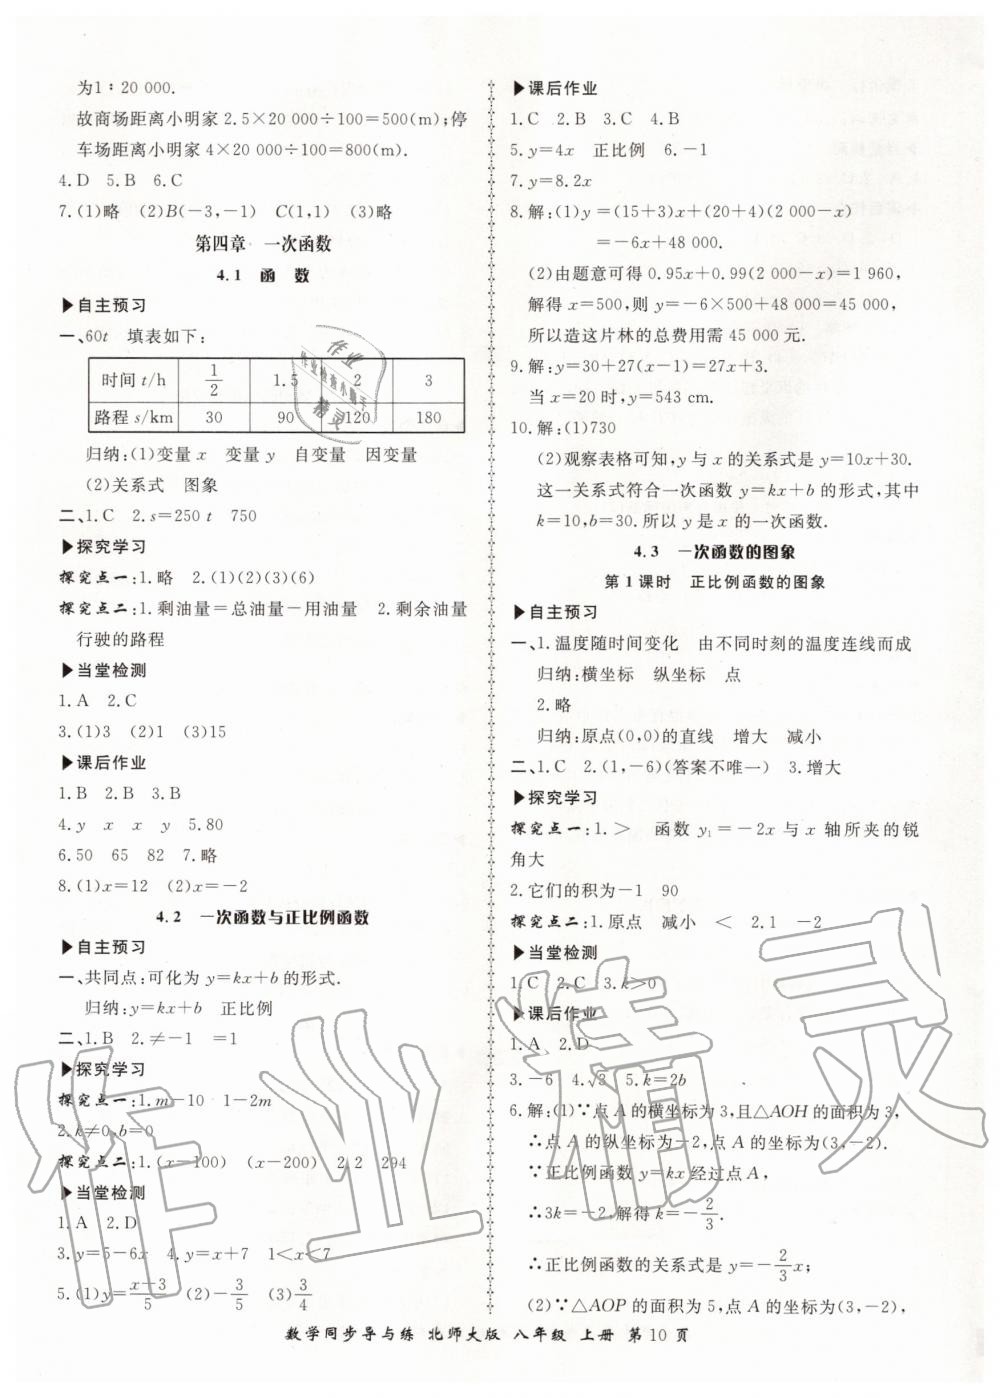 为1∶20 000.
故商场距离小明家 2.5×20 000÷100=500(m);停
车场距离小明家 4×20 000÷100=800(m).
4.D 5.B 6.C
7.(1)略 (2)B(-3,-1) C(1,1) (3)略
第四章 一次函数
4.1 函 数
▶自主预习
一、60t 填表如下:
时间 t/h 1/2 1.5 2 3
路程 s/km 30 90 120 180
归纳:(1)变量 x 变量 y 自变量 因变量
(2)关系式 图象
二、1.C 2.s=250 t 750
▶探究学习
探究点一:1.略 2.(1)(2)(3)(6)
探究点二:1.剩油量=总油量-用油量 2.剩余油量
行驶的路程
▶当堂检测
1.A 2.C
3.(1)3 (2)1 (3)15
▶课后作业
1.B 2.B 3.B
4.y x x y 5.80
6.50 65 82 7.略
8.(1)x=12 (2)x=-2
4.2 一次函数与正比例函数
▶自主预习
一、共同点:可化为 y=kx+b 的形式.
归纳:y=kx+b 正比例
二、1.B 2.≠-1 =1
▶探究学习
探究点一:1.m-10 1-2m
2.k≠0,b=0
探究点二:1.(x-100) (x-200) 2.2 294
▶当堂检测
1.A 2.D
3.y=5-6x 4.y=x+7 1<x<7
5.(1)y=(x-3)/5 (2)-3/5 (3)3/4
▶课后作业
1.C 2.B 3.C 4.B
5.y=4x 正比例 6.-1
7.y=8.2x
8.解:(1)y=(15+3)x+(20+4)(2 000-x)
=-6x+48 000.
(2)由题意可得 0.95x+0.99(2 000-x)=1 960,
解得 x=500,则 y=-6×500+48 000=45 000,
所以造这片林的总费用需 45 000 元.
9.解:y=30+27(x-1)=27x+3.
当 x=20 时,y=543 cm.
10.解:(1)730
(2)观察表格可知,y 与 x 的关系式是 y=10x+30.
这一关系式符合一次函数 y=kx+b 的形式,其中
k=10,b=30.所以 y 是 x 的一次函数.
4.3 一次函数的图象
第 1 课时 正比例函数的图象
▶自主预习
一、1.温度随时间变化 由不同时刻的温度连线而成
归纳:横坐标 纵坐标 点
2.略
归纳:原点(0,0)的直线 增大 减小
二、1.C 2.(1,-6)(答案不唯一) 3.增大
▶探究学习
探究点一:1.> 函数 y₁=-2x 与 x 轴所夹的锐
角大
2.它们的积为-1 90
探究点二:1.原点 减小 < 2.1 -2
▶当堂检测
1.C 2.C 3.k>0
▶课后作业
1.A 2.D
3.-6 4.√3 5.k=2b
6.解:(1)∵点 A 的横坐标为 3,且△AOH 的面积为 3,
∴点 A 的纵坐标为-2,点 A 的坐标为(3,-2).
∵正比例函数 y=kx 经过点 A,
∴3k=-2,解得 k=-2/3.
∴正比例函数的关系式是 y=-2/3x;
(2)∵△AOP 的面积为 5,点 A 的坐标为(3,-2),
数学同步导与练 北师大版 八年级 上册 第 10 页
作业精灵
作业
作业检查小帮手
精灵